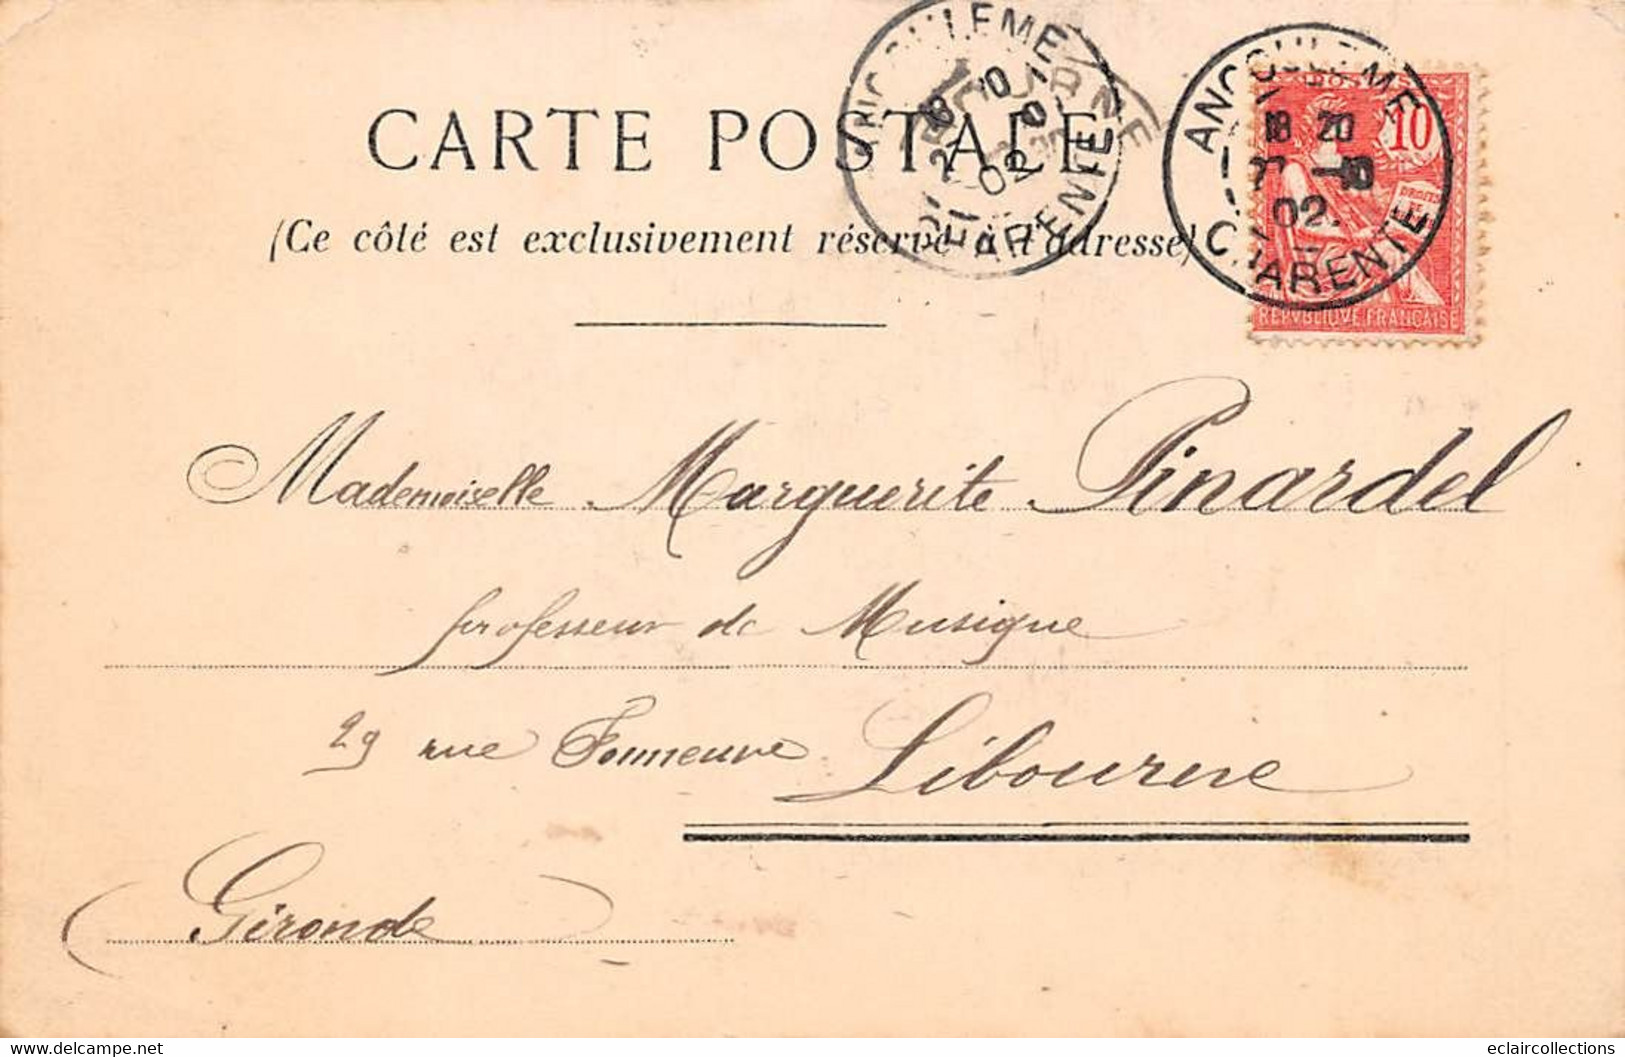 CARTE POSTALE
(Ce côté est exclusivement réservé à l'adresse)
ANGOULEME
18 10
02
CHARENTE
LIBOURNE
ANGOULEME
18 20
02
CHARENTE
POSTES
10
DROITS DE
REPVBLIQVE FRANCAISE
Mademoiselle Marguerite Pinardel
professeur de Musique
29 rue Fonneuve Libourne
(Gironde)
delcampe.net
eclaircollections